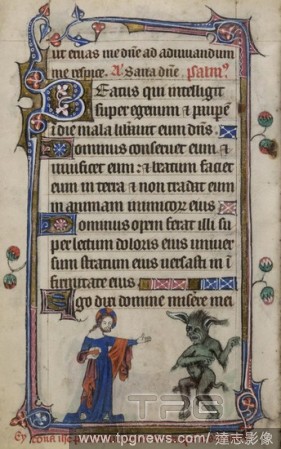 ut eruas me dñe ad adiuuandum
me respice. A' Sana dñe psalm'
Beatus qui intelligit
super egenum et paupẽ
ĩ die mala liberabit eum dñs.
Dominus conseruet eum et
uiuificet eum: et beatum faciet
eum in terra et non tradat eum
in animam inimicorum eius
Dominus opem ferat illi su
per lectum doloris eius uniuer
sum stratum eius uersasti in ĩ
firmitate eius
Ego dixi domine miserere mei
TPG
www.tpgnews.com/ 達志影像